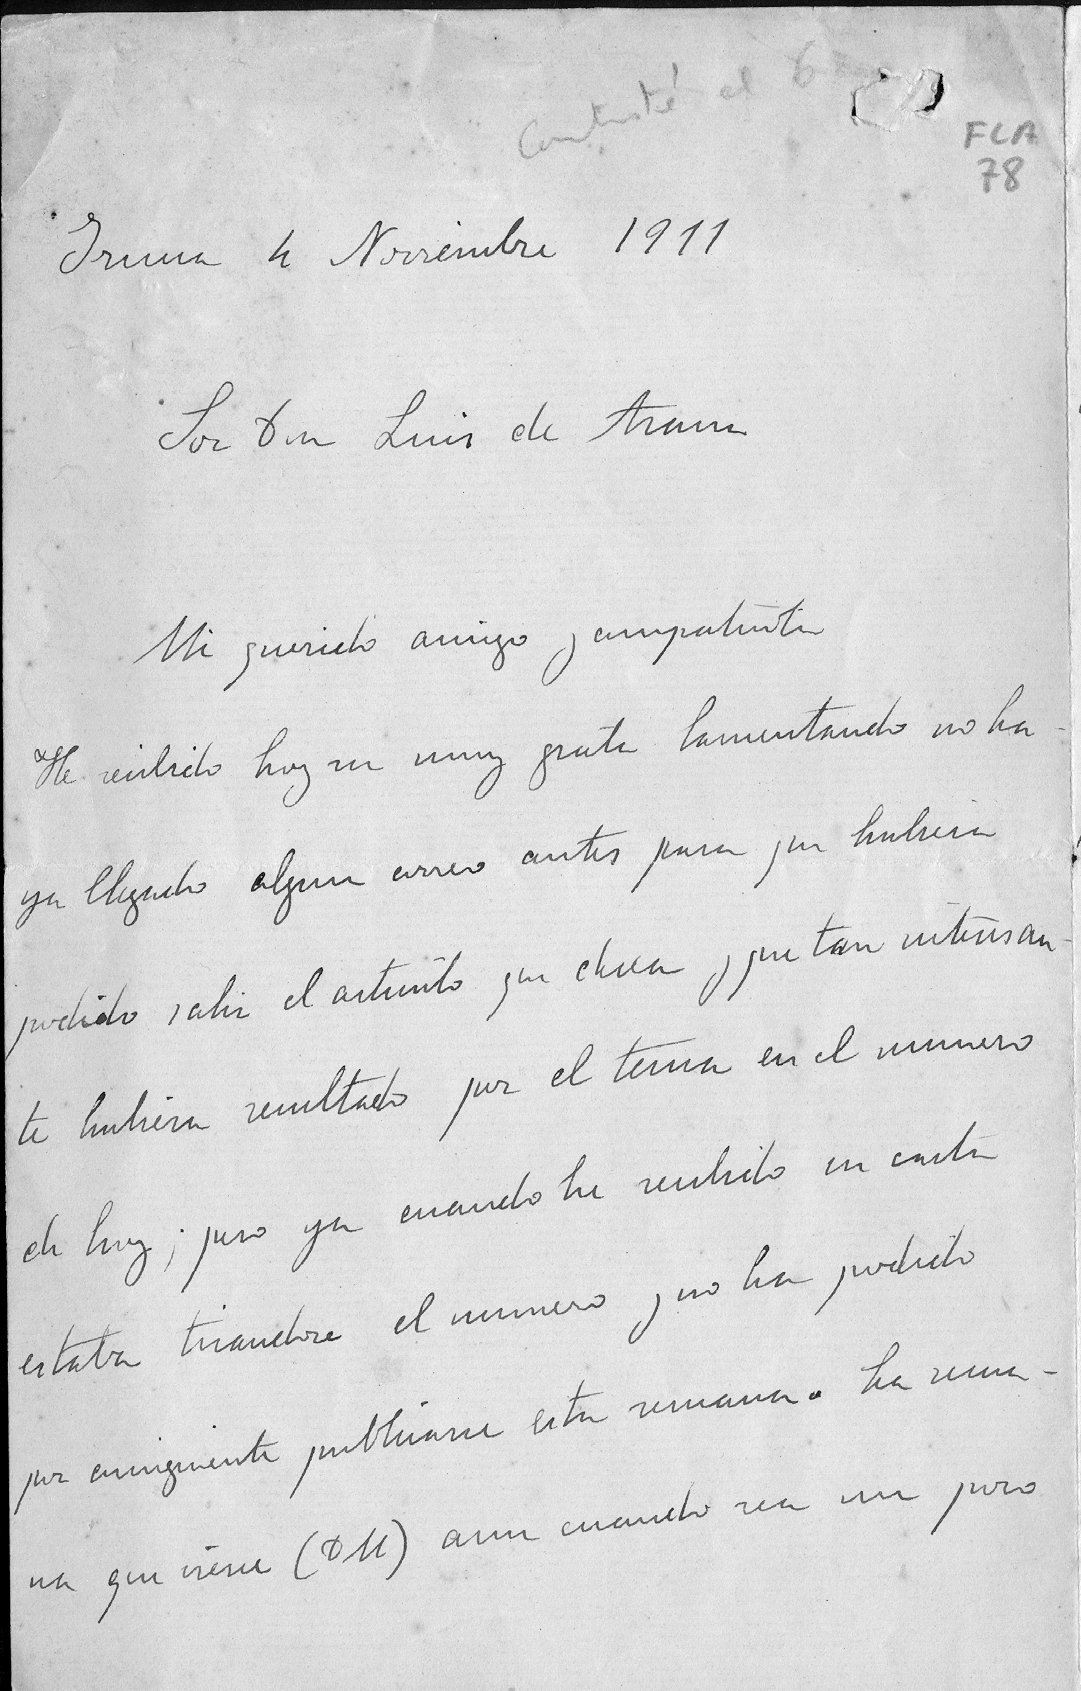 Contesté el 6
FLA
78
Iruna 4 Noviembre 1911
Sor Don Luis de Arana
Mi querido amigo y compatriota
He recibido hoy su muy grata lamentando no ha-
ya llegado algun correo antes para que hubiera
podido salir el articulo que desea y que tan interesan-
te hubiera resultado por el tema en el numero
de hoy; pero ya cuando he recibido su carta
estaba tirandose el numero y no ha podido
por consiguiente publicarse esta semana. La sema-
na que viene (DM) aun cuando sea un poco